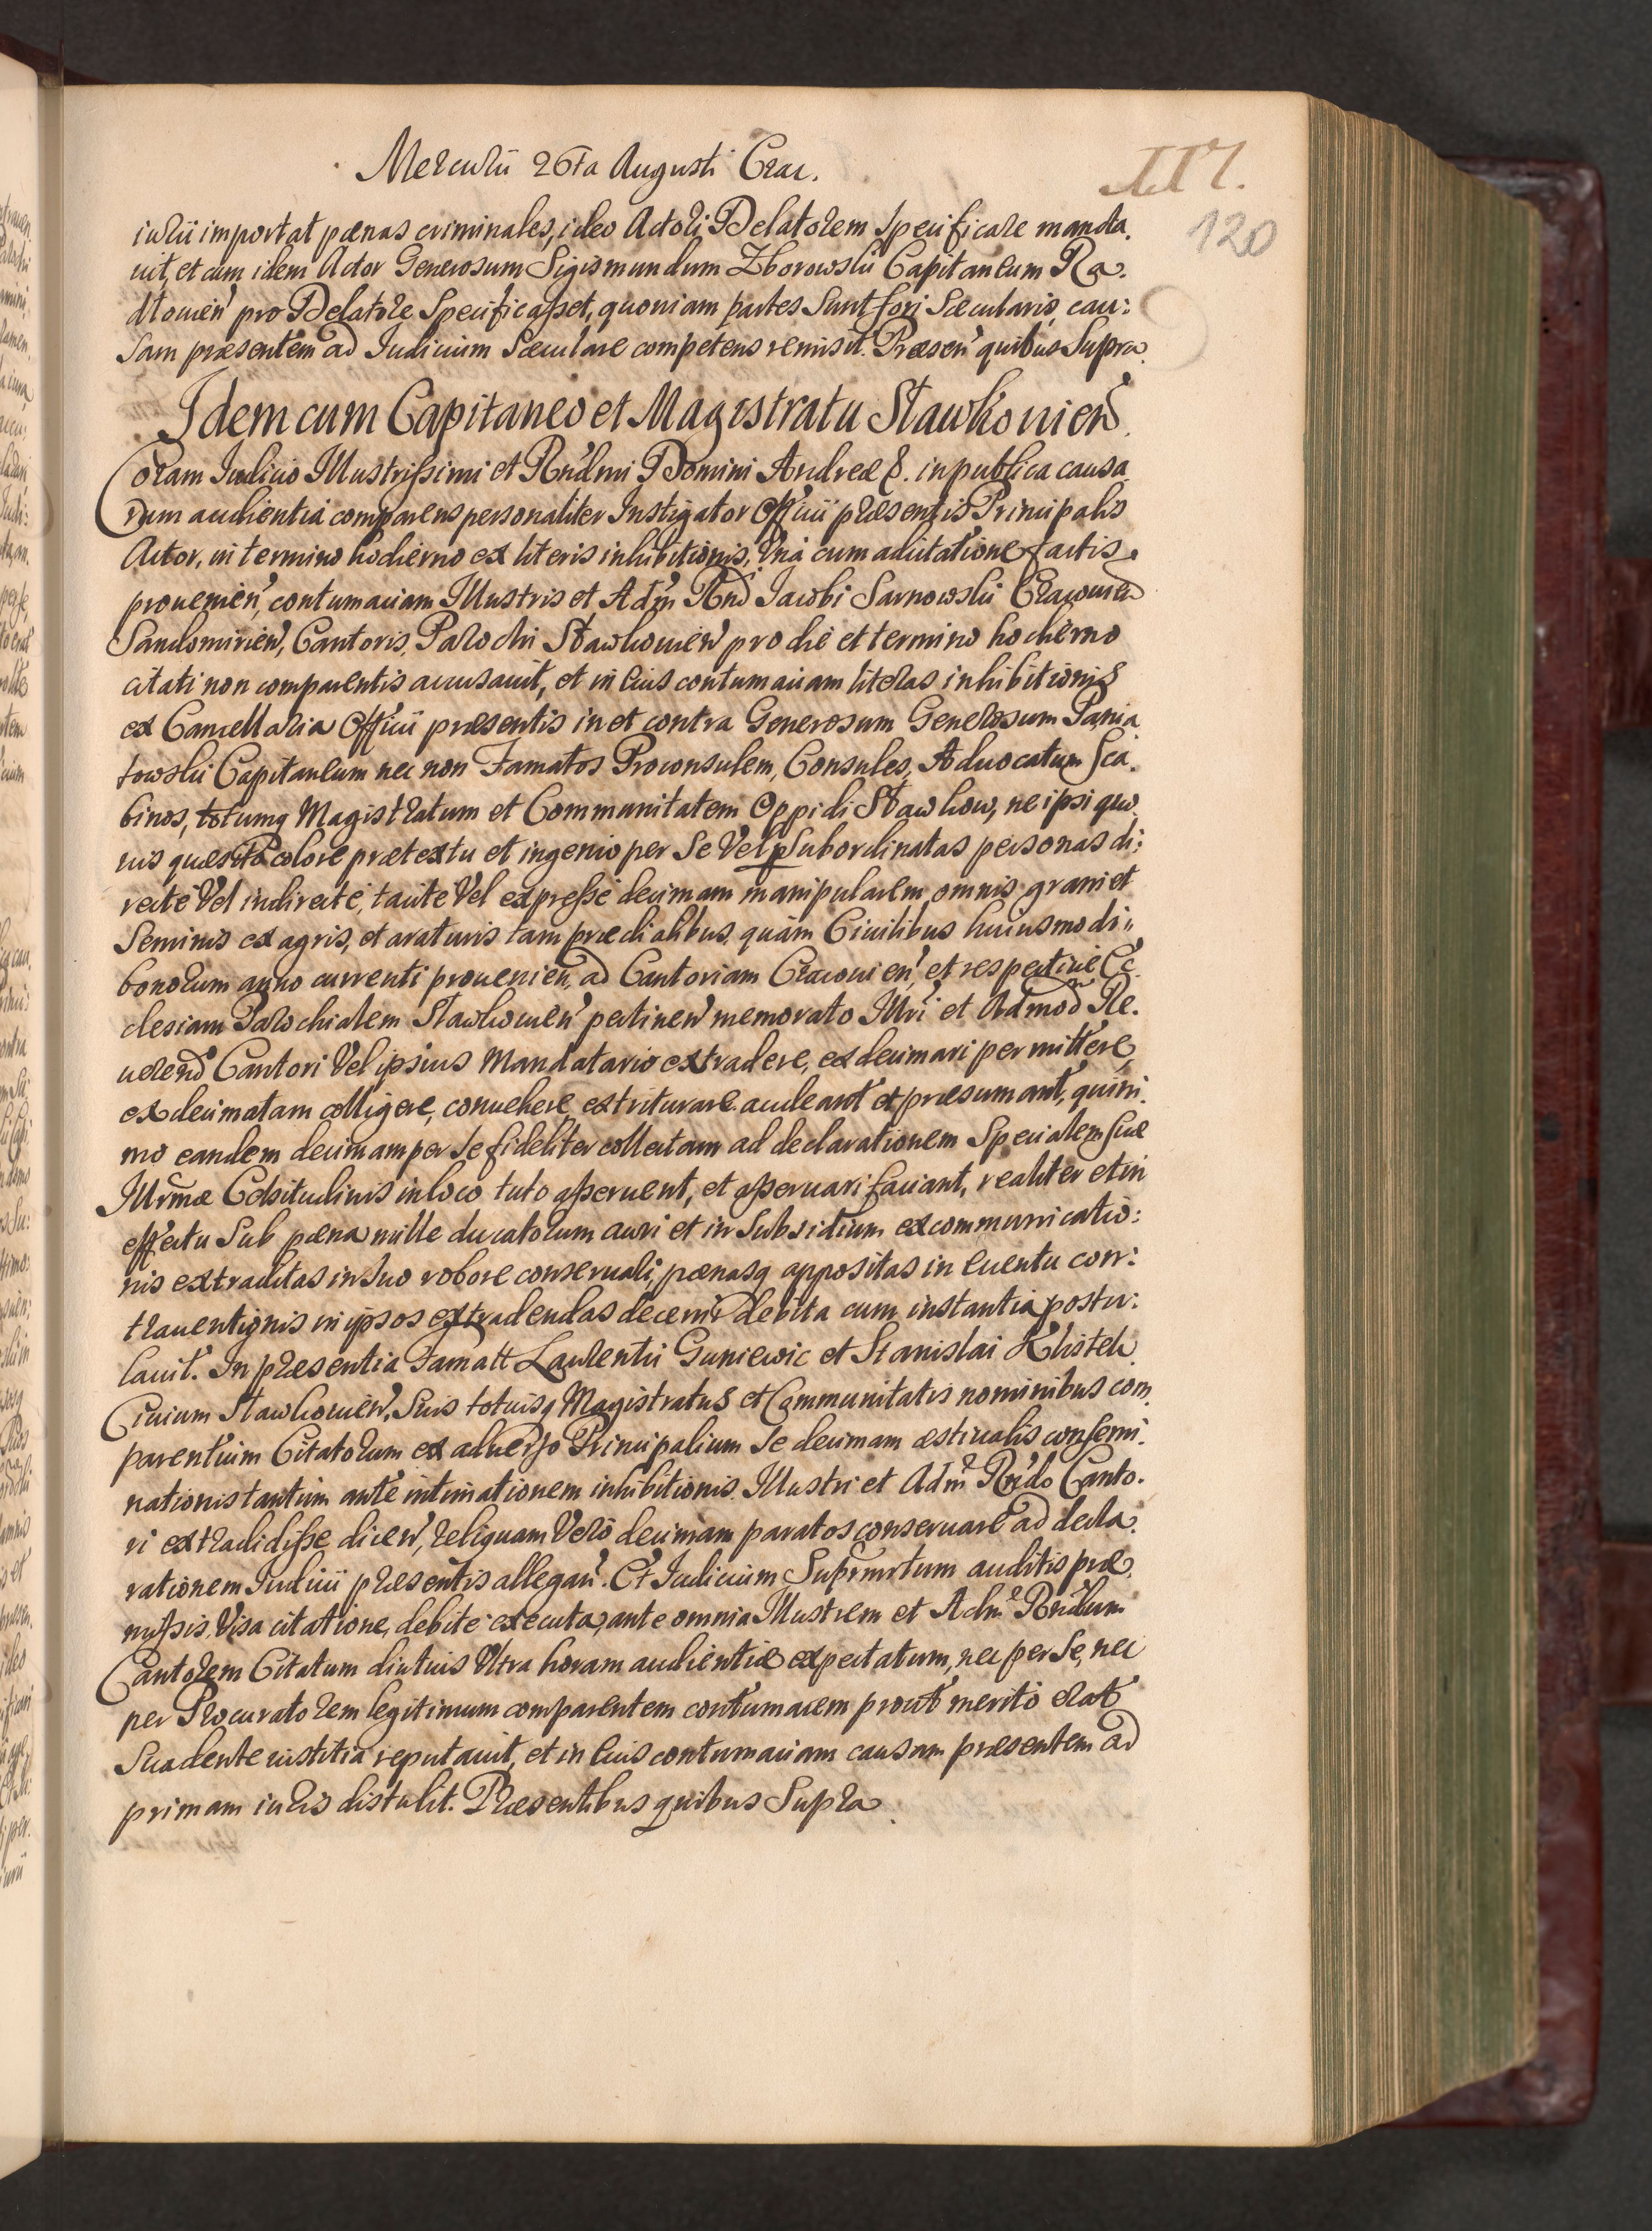 Mercurii 26ta Augusti Crac.
117.
120
iurii importat pœnas criminales, ideo Actori Delatorem specificare manda
uit, et cum idem Actor Generosum Sigismundum Zborowski Capitaneum Ra.
dlouień pro Delatore Specificasset, quoniam partes sunt fori Sæcularis, cau:
sam præsentem ad Iudicium Sæculare competens remisit. Præseń quibus Supra
Idem cum Capitaneo et Magistratu Sławkouień
Coram Iudicio Illustrissimi et Rńdmi Domini Andreæ &. in publica causa
rum audientia comparens personaliter Instigator Officii præsentis Principalis
Actor, in termino hodierno ex literis inhibitionis, Vná cum adcitatione factis
prouenień, contumaciam Illustris et Adm Rnd Iacobi Sarnowski Cracouień
Sandomirień, Cantoris, Parochi Sławkouień pro die et termino hodierno
citati non comparentis accusauit, et in eius contumaciam literas inhibitionis
ex Cancellaria Officii præsentis in et contra Generosum Generosum Ponia
towski Capitaneum nec non Famatos Proconsulem, Consules, Aduocatum Sca.
binos, totumq Magistratum et Communitatem Oppidi Sławkow, ne ipsi quo
uis quæsito colore prætextu et ingenio per se Vel p Subordinatas personas di:
recté Vel indirecté, tacité Vel expressé decimam manipularem omnis grani et
Seminis ex agris, et araturis tam prædialibus, quám Ciuilibus huiusmodi
bonorum anno currenti prouenień, ad Cantoriam Cracouień, et respectiué Ec
clesiam Parochialem Sławkouień pertineń memorato Illri et Admod Re.
uerend Cantori Vel ipsius Mandatario extradere, ex decimari permittere,
exdecimatam colligere, conuehere, extriturare audeant et præsumant, quini.
mo eandem decimam per se fideliter collectam ad declarationem Specialem suæ
Illrmæ Celsitudinis in loco tuto asseruent, et asseruari faciant, realiter et in
effectu Sub pœna mille ducatorum auri et in subsidium excommunicatio:
nis extraditas in suo robore conseruari, pœnasq appositas in euentu con:
trauentionis in ipsos extradendas decerni debita cum instantia postu:
lauit. In præsentia Famatt Laurentii Guniewic et Stanislai Khistek
Ciuium Sławkouień, Suis totiusq Magistratus et Communitatis nominibus com
parentium Citatorum ex aduerso Principalium se decimam æstiualis consemi.
nationis tantum anté intimationem inhibitionis Illustri et Adm Rńdo Canto.
ri extradidisse diceń, reliquam Veró decimam paratos conseruare ad decla.
rationem Iudicii præsentis allegań. Et Iudicium Suprmrtum auditis præ
missis, Visa citatione, debité executa, ante omnia Illustrem et Adm Rńdum
Cantorem Citatum diutius Vltra horam audientiæ expectatum, nec per se, nec
per Procuratorem legitimum comparentem contumacem prout meritó erat
Suadente iustitia reputauit, et in eius contumaciam causam præsentem ad
primam iuris distulit. Præsentibus quibus Supra